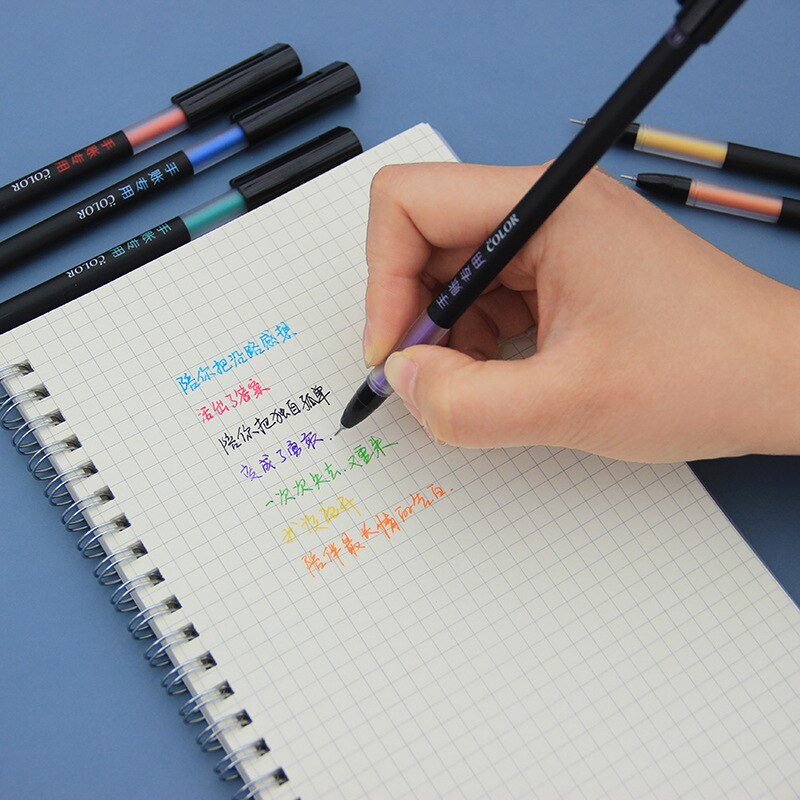 手帐专用 COLOR
手帐专用 COLOR
手帐专用 COLOR
手帐专用 COLOR
陪你把沿路感想
活出了答案
陪你把独自孤单
变成了勇敢.
一次次失去..又重来
我没离开
陪伴最长情的告白.